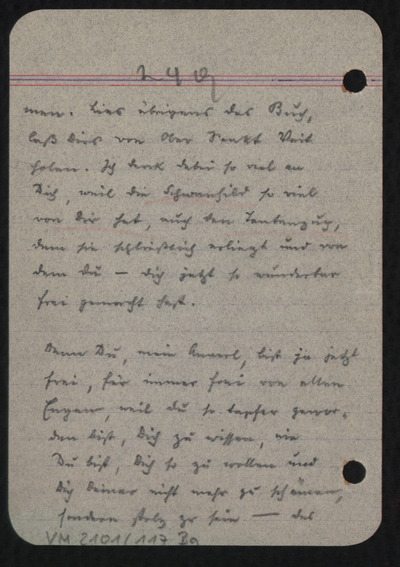 249
men. Lies übrigens das Buch,
laß Dirs von Ober Sankt Veit
holen. Ich denk dabei so viel an
Dich, weil die Schwanhild so viel
von Dir hat, auch den
dem sie schließlich erliegt und von
dem Du — Dich jetzt so wunderbar
frei gemacht hast.
Denn Du, mein, bist ja jetzt
frei, für immer frei von allen
weil Du so tapfer gewor-
den bist, Dich zu wissen, wie
Du bist, Dich so zu wollen und
Dich Deiner nicht mehr zu schämen,
sondern stolz zu sein — das
VM 2101/117 Ba